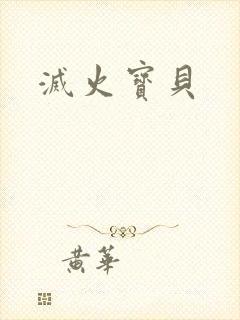 滅火寶貝
黃華